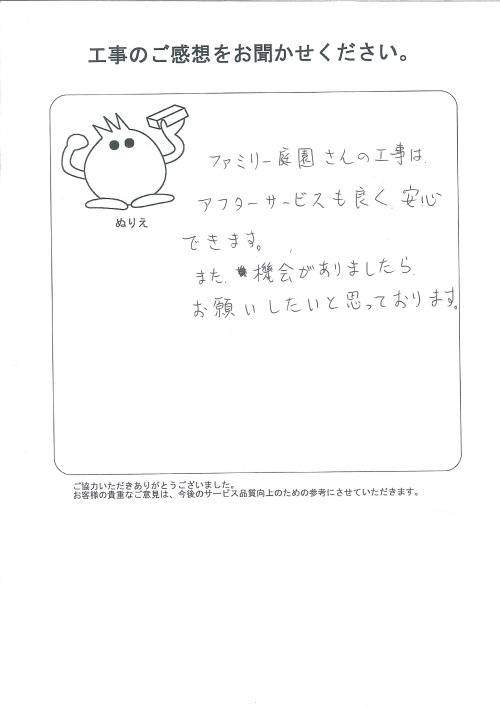 工事のご感想をお聞かせください。
ファミリー庭園さんの工事は、
アフターサービスも良く、安心
できます。
また、機会がありましたら、
お願いしたいと思っております。
ぬりえ
ご協力いただきありがとうございました。
お客様の貴重なご意見は、今後のサービス品質向上のための参考にさせていただきます。